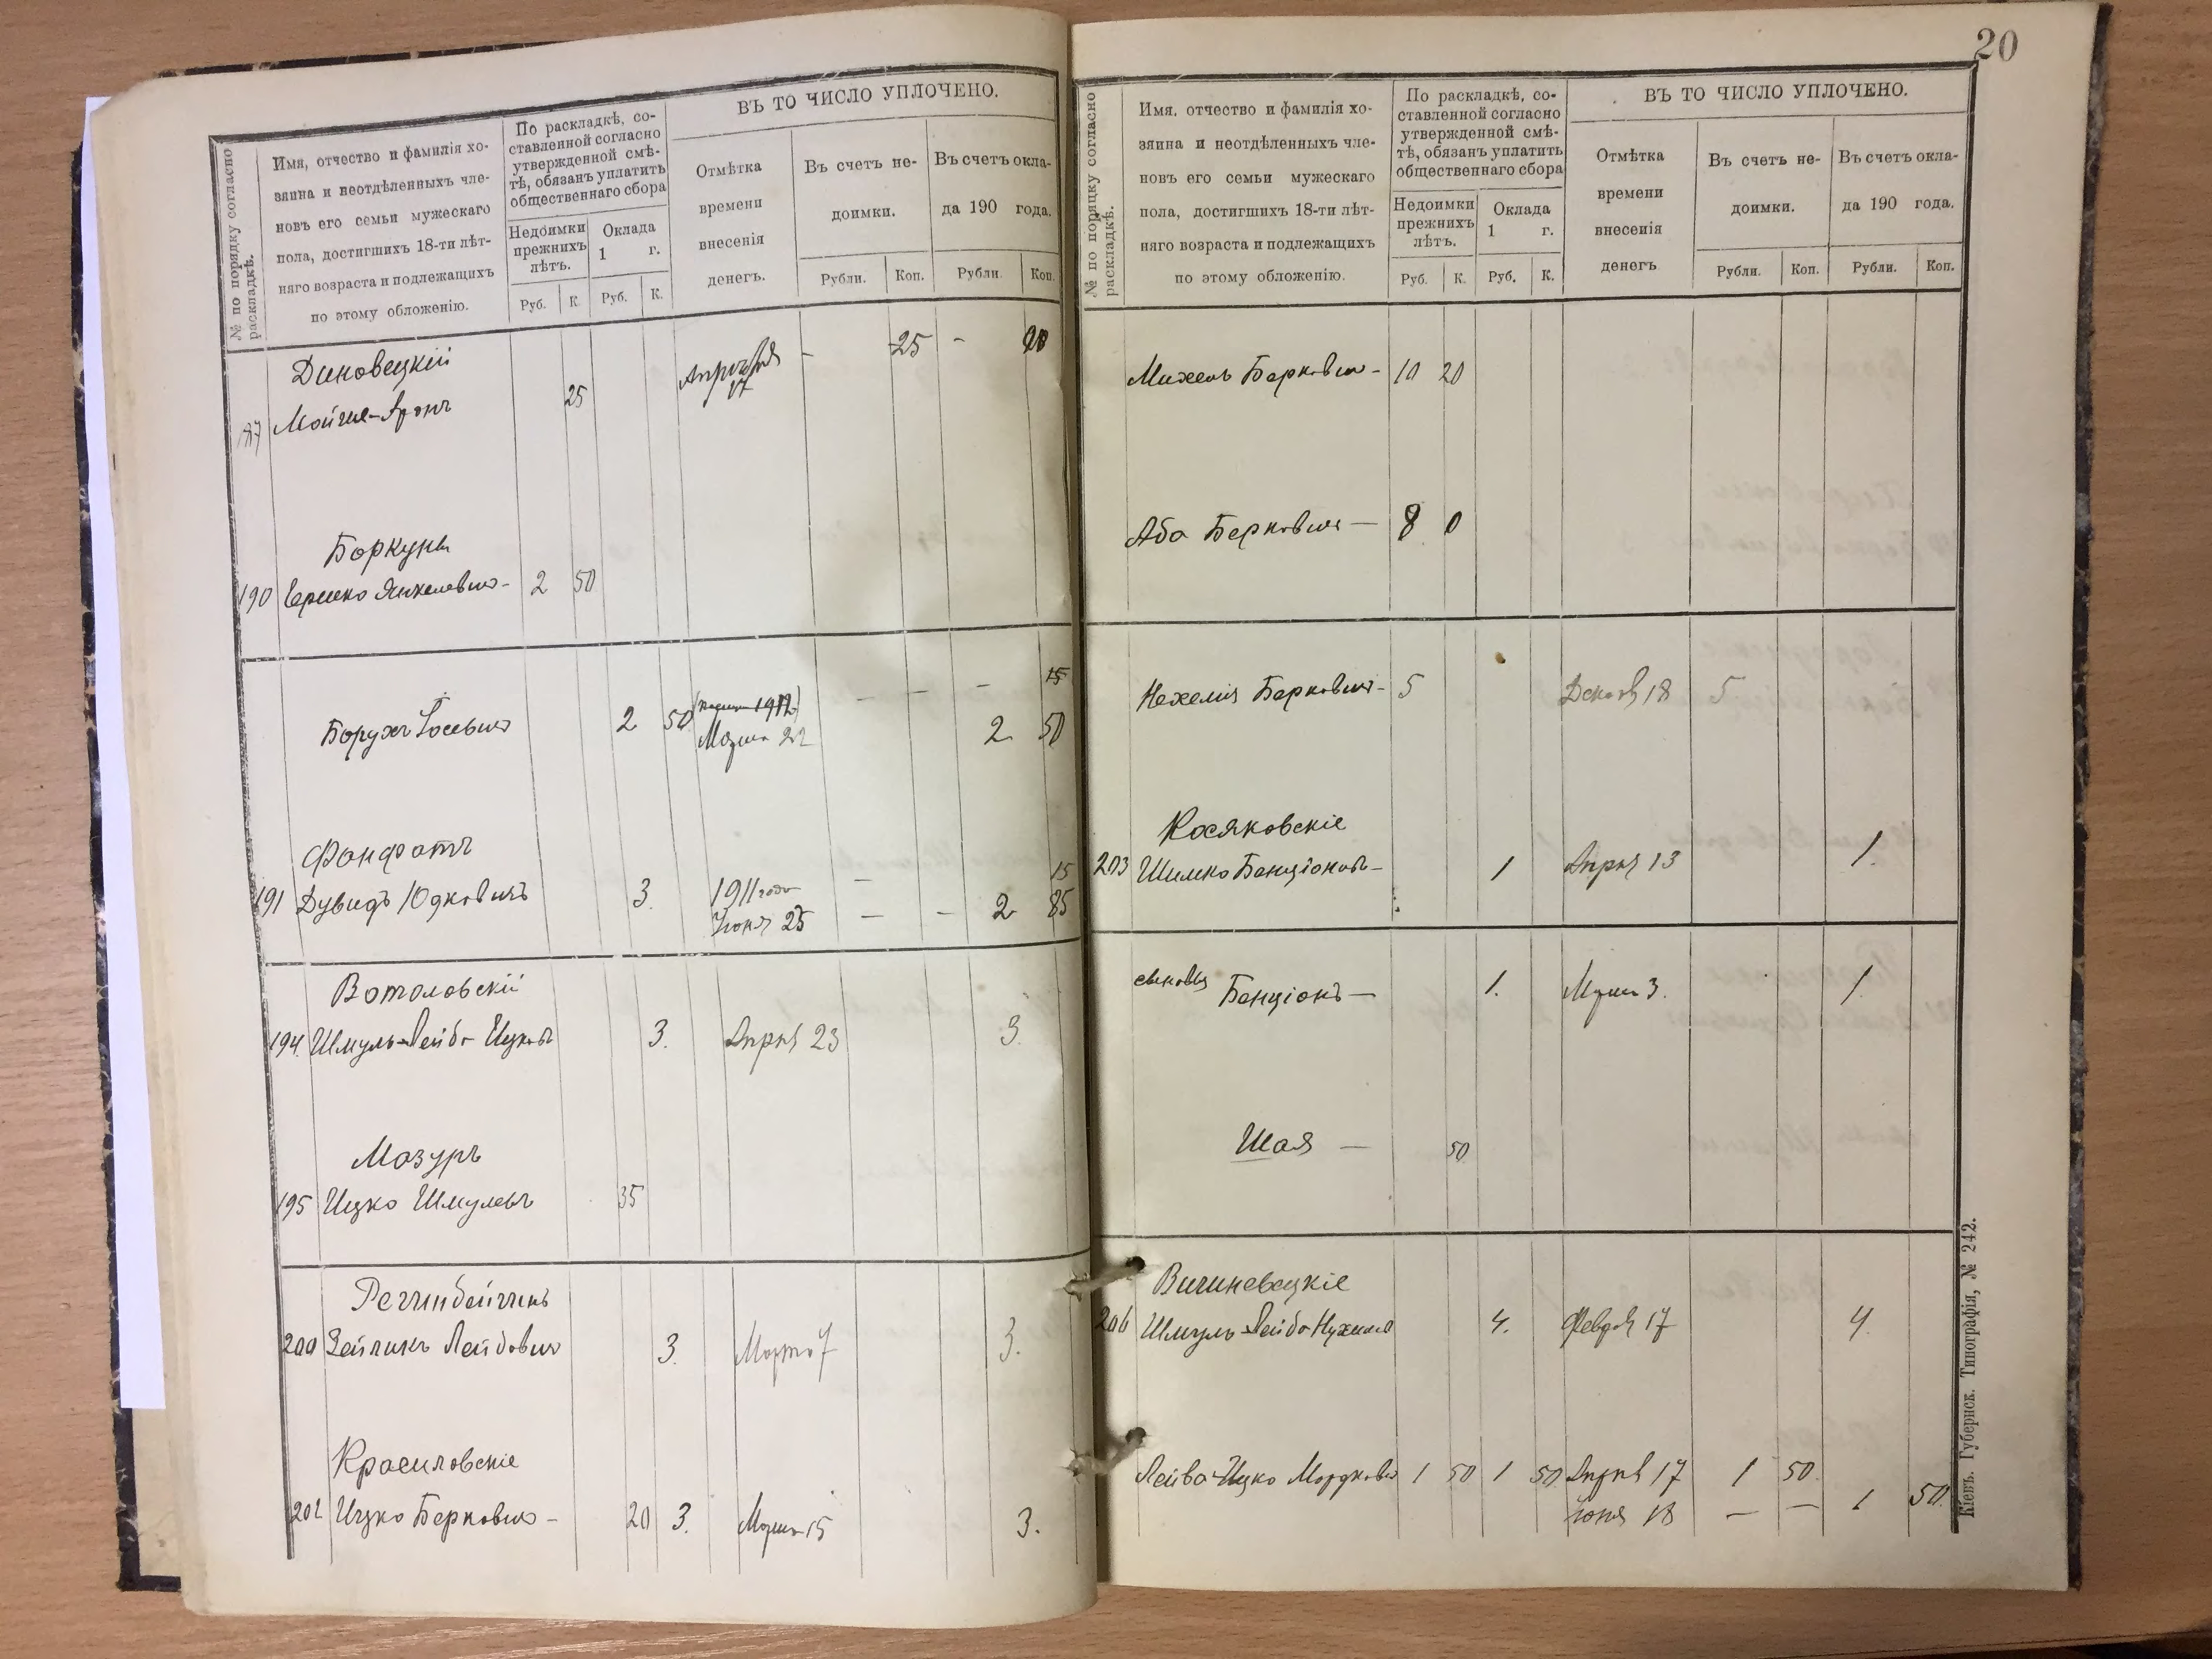 ВЪ ТО ЧИСЛО УПЛОЧЕНО.
№ по порядку согласно раскладкѣ.
Имя, отчество и фамилія хо-
зяина и неотдѣленныхъ чле-
новъ его семьи мужескаго
пола, достигшихъ 18-ти лѣт-
няго возраста и подлежащихъ
по этому обложенію.
По раскладкѣ, со-
ставленной согласно
утвержденной смѣ-
тѣ, обязанъ уплатить
общественнаго сбора
Недоимки
прежнихъ
лѣтъ.
Оклада
1 г.
Руб. К. Руб. К.
Отмѣтка
времени
внесенія
денегъ.
Въ счетъ не-
доимки.
Въ счетъ окла-
да 190 года.
Рубли. Коп. Рубли. Коп.
Диновецкій
Мойше-Аронъ 25 17 - 25 -
Боркунъ
190 Гершко Янкелевич- 2 50
15
Борухъ Іосевич 2 50 Марта 22 2 50
Фанфатъ
191 Дувидъ Юдковичъ 3. 1911 года — 15
Іюня 25 — - 2 85
Вотоловскій
194. Шмуль-Лейба Ицковъ 3. Апрѣля 23 3.
Мазуръ
195 Ицко Шмулевъ 35
200 Зейликъ Лейбович 3. Марта 7 3.
Красиловскіе
Ицко Беркович- 20 3. Марта 15 3.
20
ВЪ ТО ЧИСЛО УПЛОЧЕНО.
№ по порядку согласно раскладкѣ.
Имя, отчество и фамилія хо-
зяина и неотдѣленныхъ чле-
новъ его семьи мужескаго
пола, достигшихъ 18-ти лѣт-
няго возраста и подлежащихъ
по этому обложенію.
По раскладкѣ, со-
ставленной согласно
утвержденной смѣ-
тѣ, обязанъ уплатить
общественнаго сбора
Недоимки
прежнихъ
лѣтъ.
Оклада
1 г.
Руб. К. Руб. К.
Отмѣтка
времени
внесенія
денегъ
Въ счетъ не-
доимки.
Въ счетъ окла-
да 190 года.
Рубли. Коп. Рубли. Коп.
Михель Беркович- 10 20
Аба Беркович — 8 0
Нехемія Беркович- 5 Декаб 18 5
Косяковскіе
203 Шимко Бенціонов- 1 Апрѣля 13 1.
сыновья Бенціонъ — 1. Марта 3. 1.
Шая — 50
Вишневецкіе
206 Шмуль-Лейба 4. Февраля 17 4.
Лейба-Ицко Мордкович 1 50 1 50 Апрѣля 17 1 50
Іюня 18 — — 1 50.
Кіевъ. Губернск. Типографія, № 242.